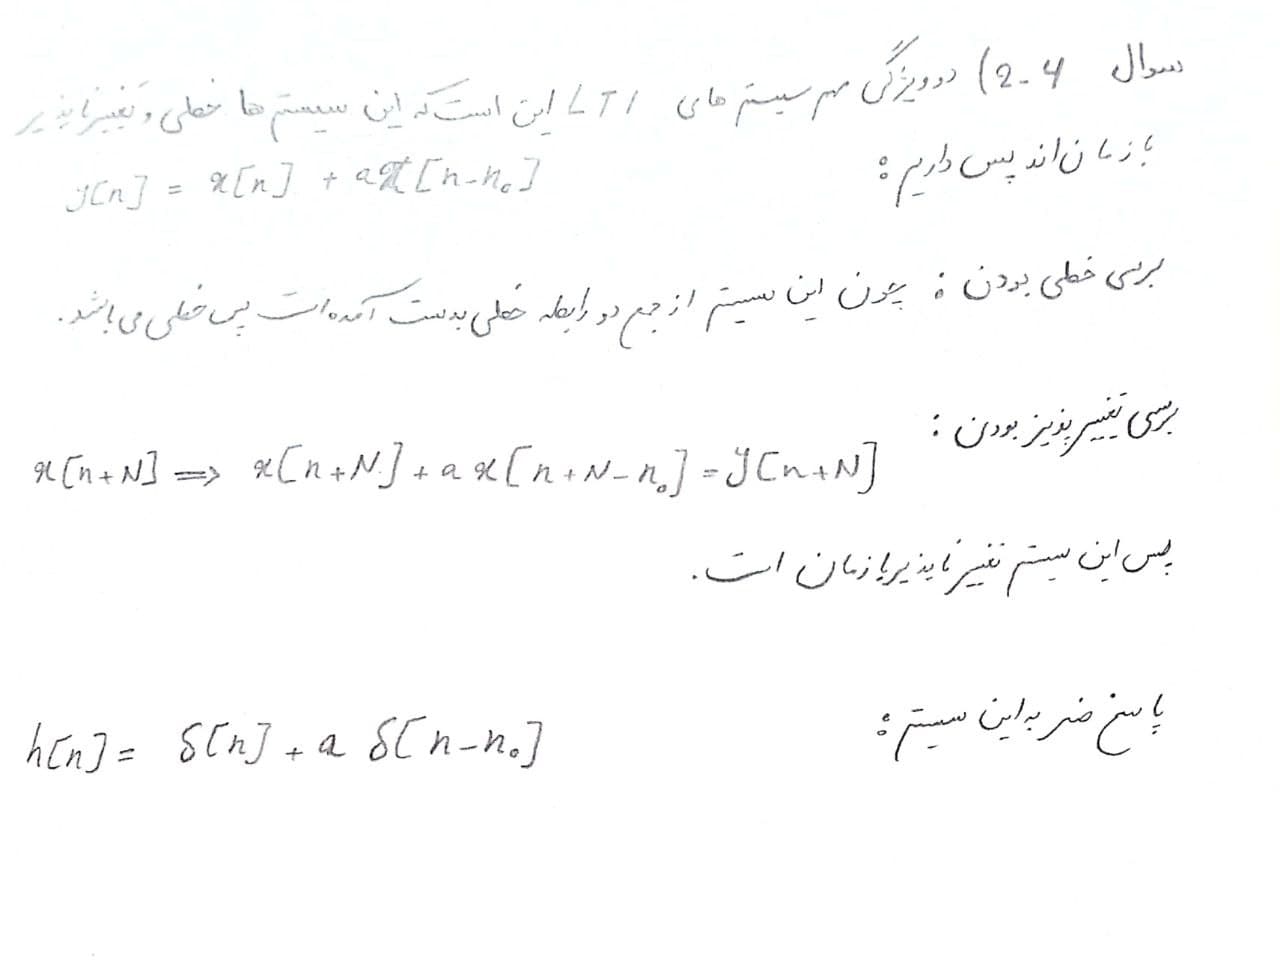 سوال 2-4) دو ویژگی مهم سیستم های LTI این است که این سیستم ها خطی و تغییرناپذیر
با زمان اند پس داریم :
y[n] = x[n] + a x[n-n₀]
بررسی خطی بودن : چون این سیستم از جمع دو رابطه خطی بدست آمده است پس خطی می باشد.
بررسی تغییر پذیر بودن :
x[n+N] ⇒ x[n+N] + a x[n+N-n₀] = y[n+N]
پس این سیستم تغییر ناپذیر با زمان است.
پاسخ ضربه این سیستم :
h[n] = δ[n] + a δ[n-n₀]